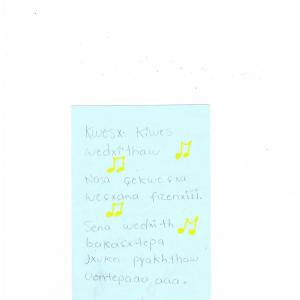 Kiwesx. Kiwes
wedxi'thaw
Nasa çekwesxa
wesxana fizenxiii.
Sena wedxi'th
bakasx-tepa
Jxuka pyakhthaw
aaa.